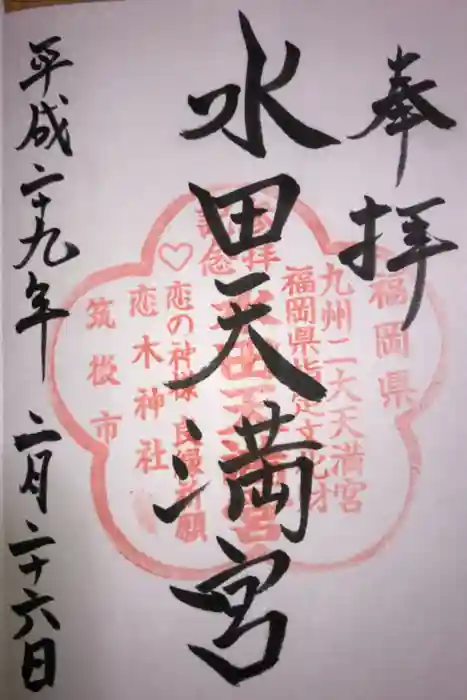 奉拝
水田天満宮
平成二十九年 二月二十六日
福岡県
九州二大天満宮
福岡県指定文化財
参拝
記念
水田天満宮
♡
恋の神様 良縁祈願
恋木神社
筑後市